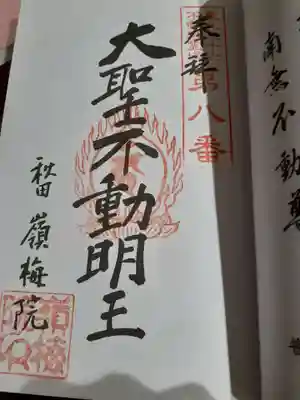 奉拝
第八番
大聖不動明王
秋田 嶺梅院
南無不動尊